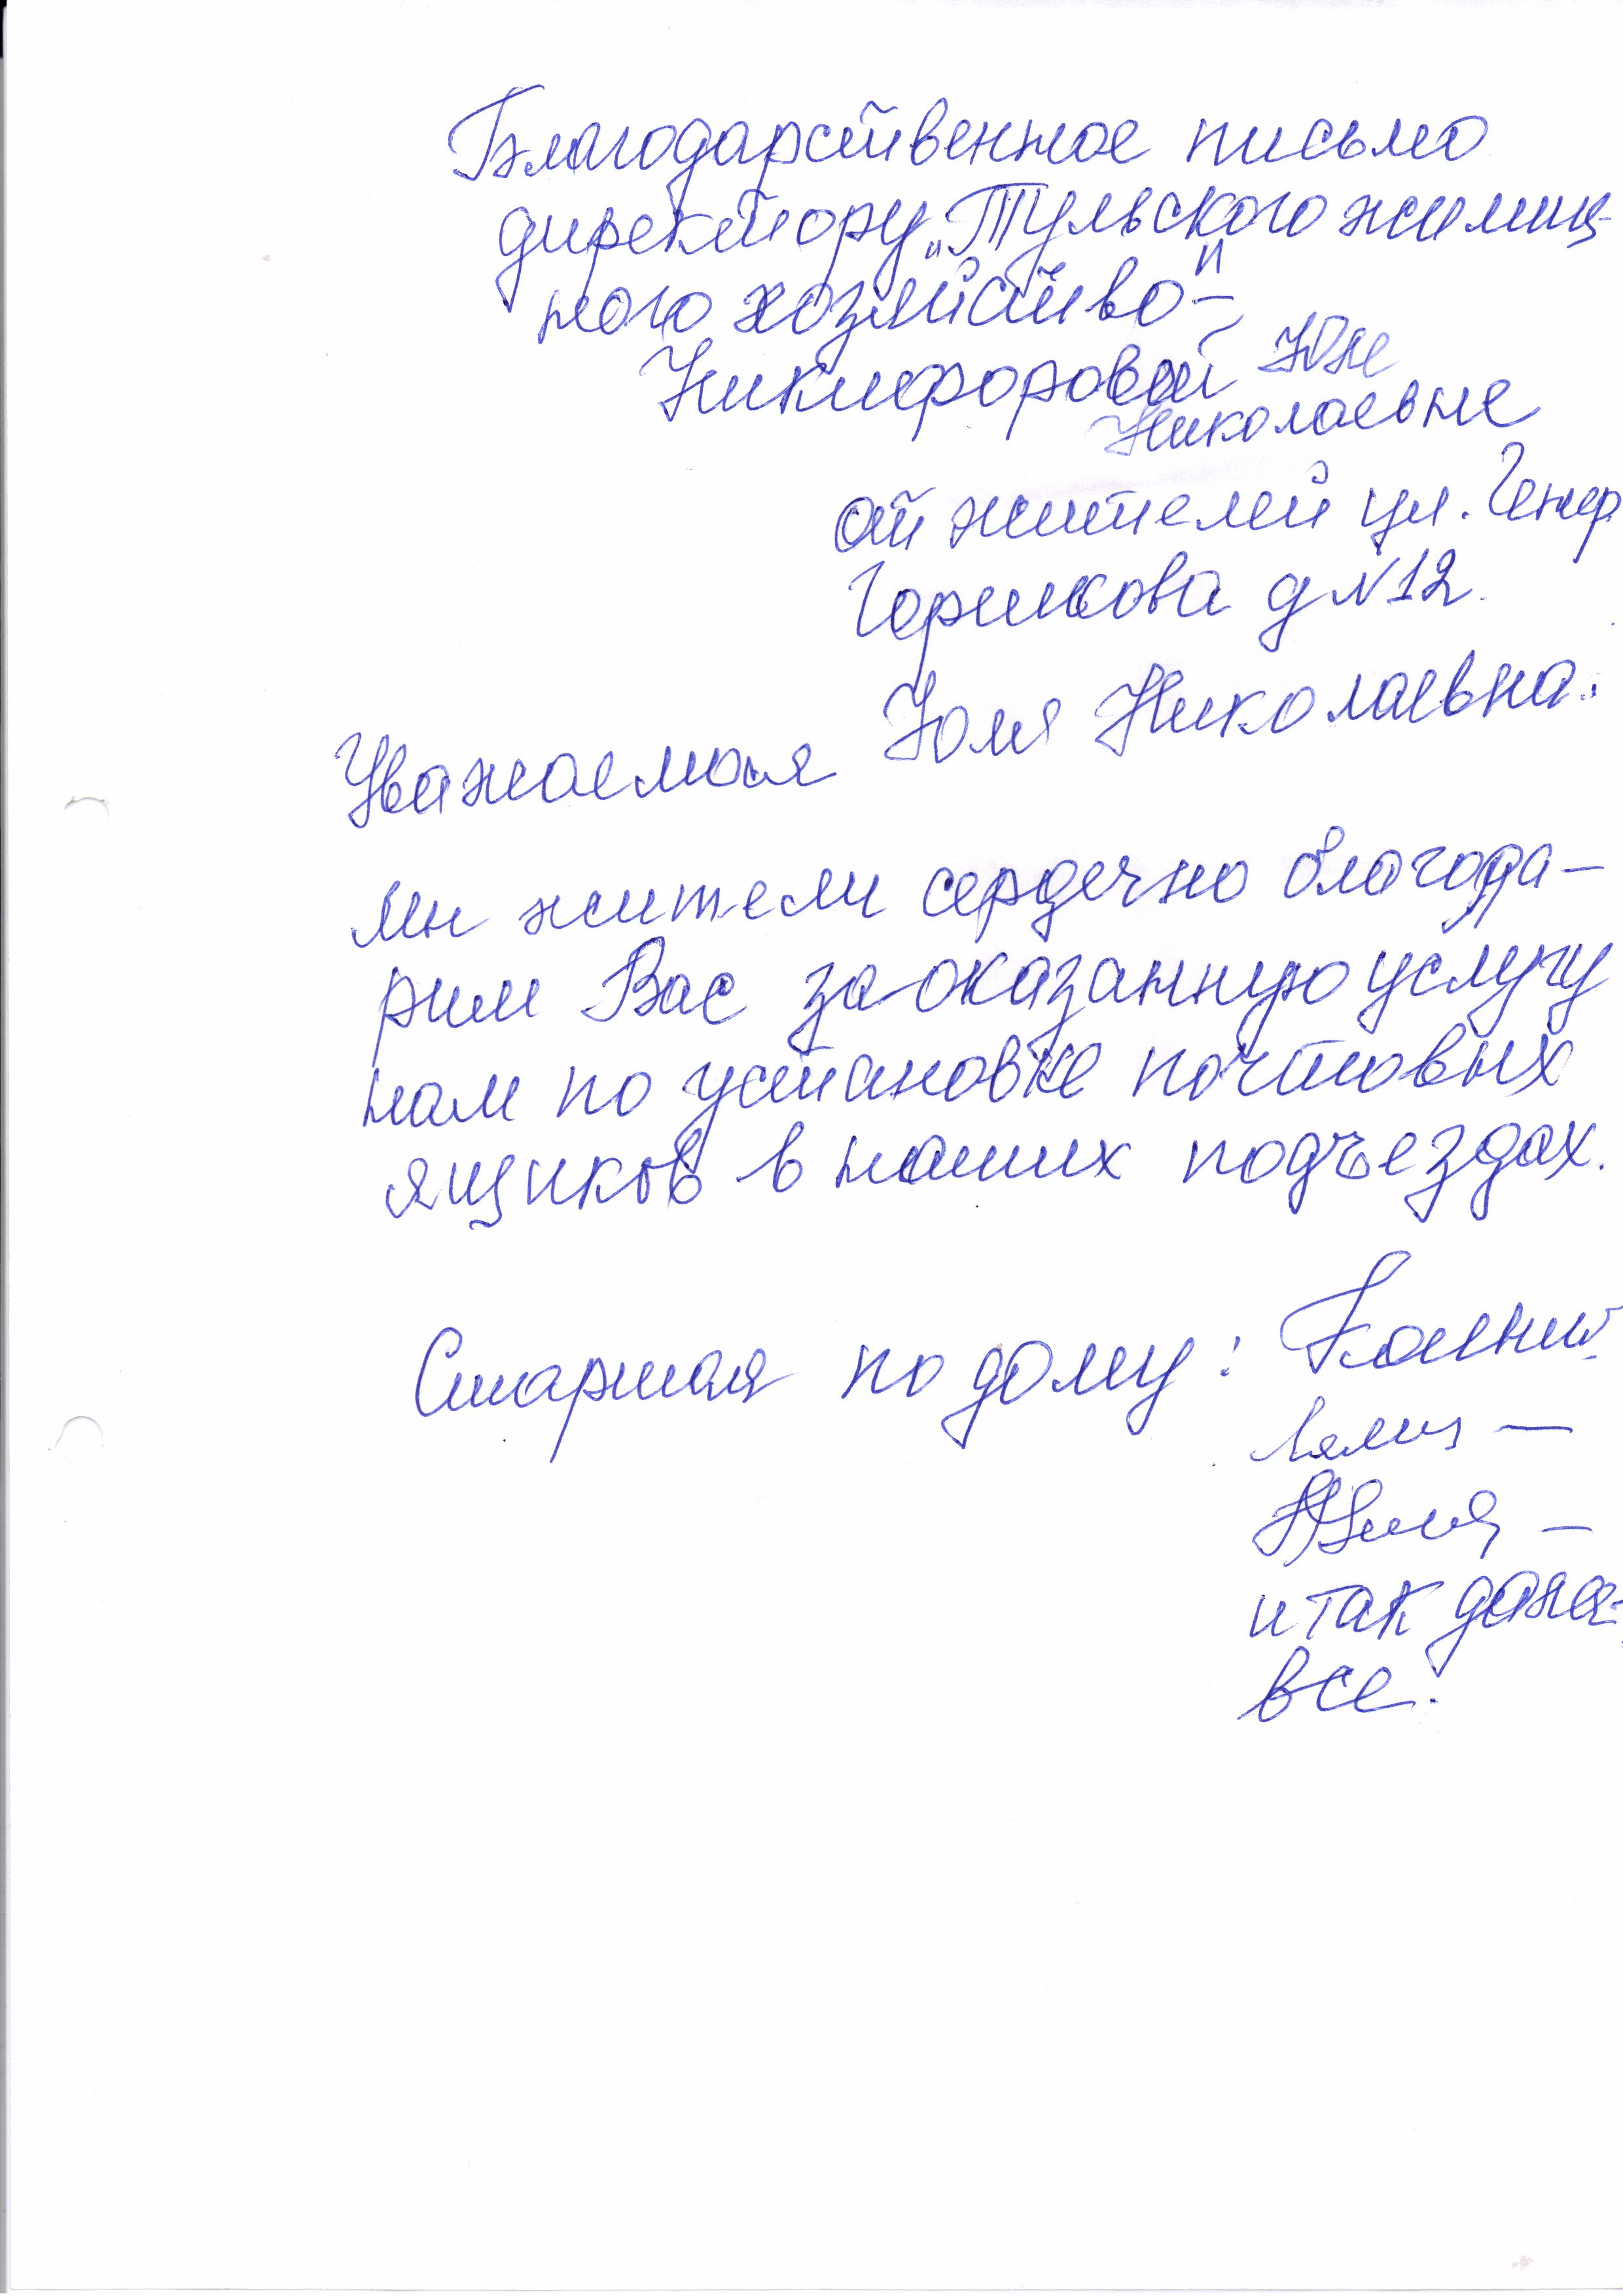 Благодарственное письмо
директору „Тульского жилищ-
ного хозяйство" –
Никифоровой Юле
Николаевне
от жителей ул. Генер
Горшкова д N 12.
Уважаемая Юлия Николаевна.
мы жители сердечно благода-
рим Вас за оказанную услугу
нам по установке почтовых
ящиков в наших подъездах.
Старшая по дому:
и так дана-
все.